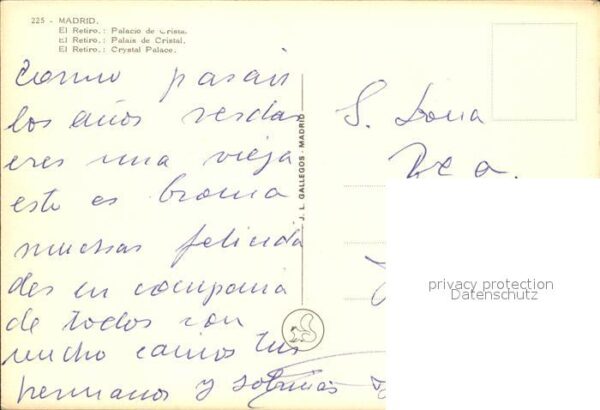 225 - MADRID.
El Retiro.: Palacio de Crista.
El Retiro.: Palais de Cristal.
El Retiro.: Crystal Palace.
como pasan
los años
eres una vieja
esto es broma
muchas felicida
des en compania
de todos con
mucho tus
hermanos y sobrinas
J. L. GALLEGOS - MADRID
S.
privacy protection
Datenschutz